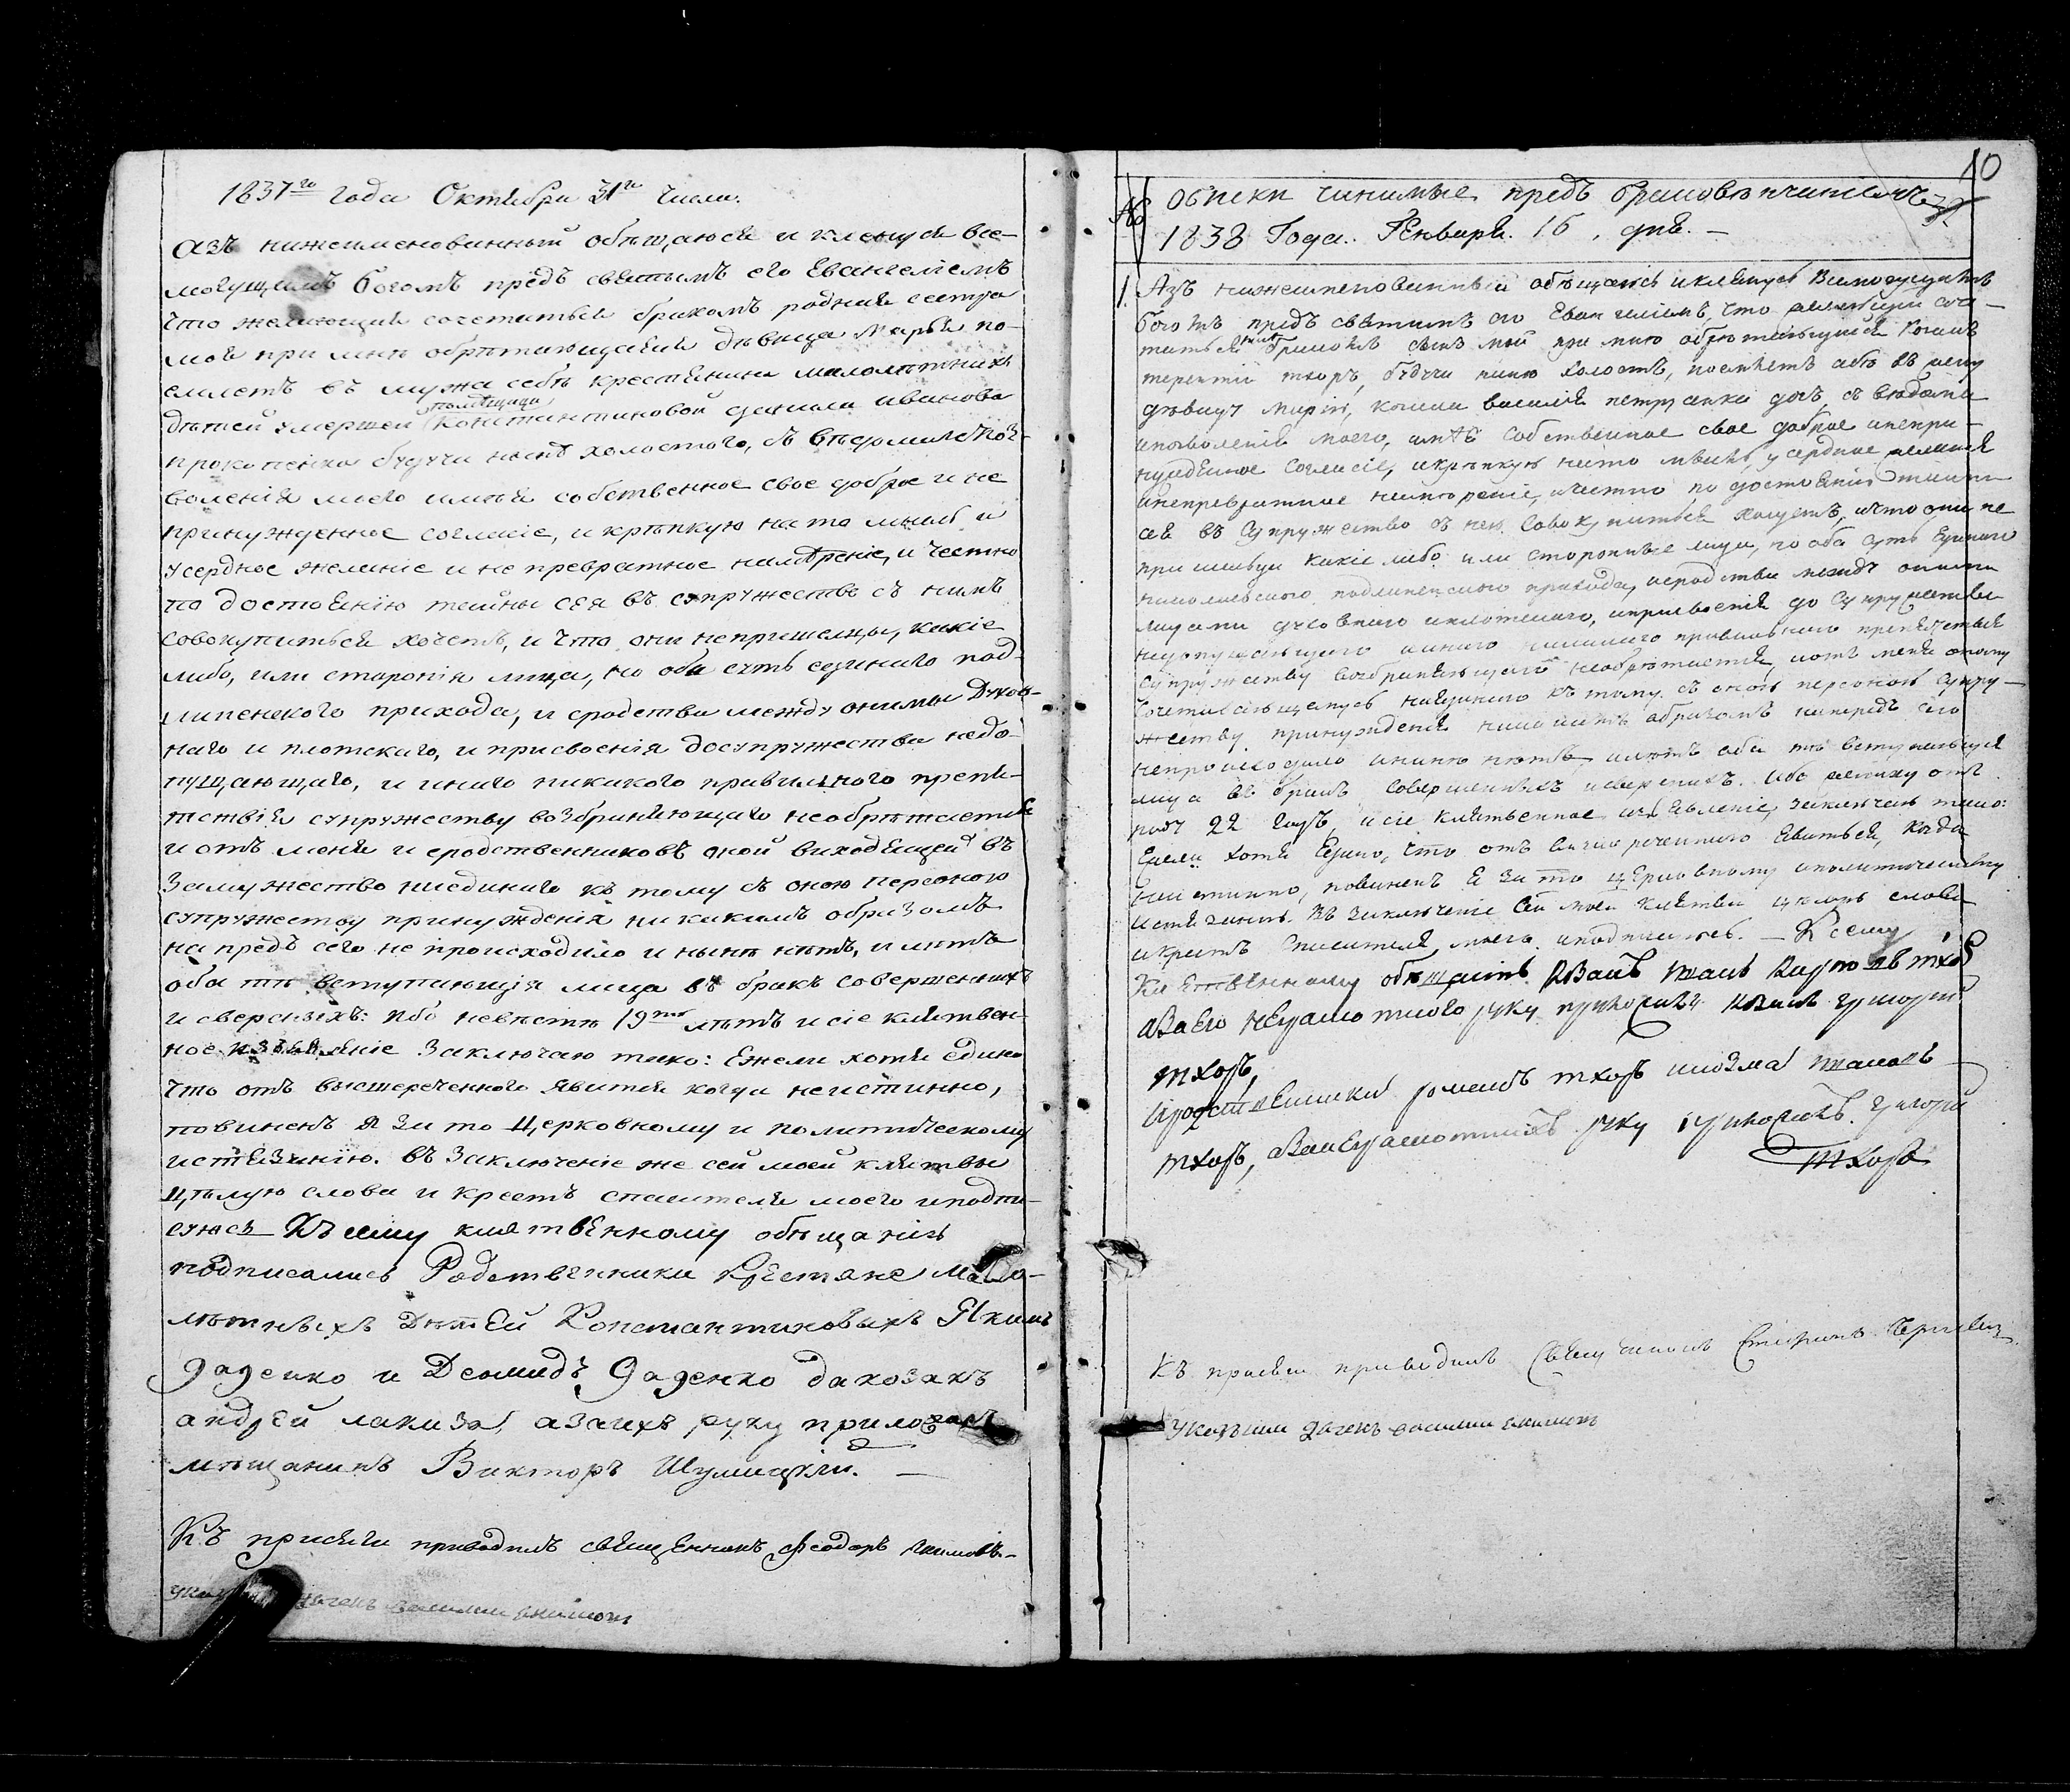 1837го года Октября 31го числа.
Азъ нижеименованный обѣщаюся и кленуся все-
могущимъ Богомъ предъ святымъ его Евангелiемъ
что желающая сочетатися бракомъ родная сестра
моя при мнѣ обрѣтающаяся дѣвица Марья по-
сялетъ въ мужа себѣ крестьянина малолѣтнихъ
помѣщицы
дѣтей умершей Константиновой Данила Иванова
Прокопенка будучи нынѣ холостаго, съ вѣдома и спо3-
воленiя моего имѣя собственное свое доброе и не
принужденное согласiе, и крѣпкую на то мысль и
усердное желанiе и не превратное намѣренiе, и честно
по достоянiю тайны сея въ супружество съ нимъ
совокупиться хочетъ, и что они не пришелцы, какiе
либо, или сторонiя лица, но оба суть единаго под-
липенского прихода, и сродства между онимы Духов-
наго и плотскаго, и присвоенiя до супружества недо-
пущающаго, и иного никакого правилного препя-
тствiя супружеству возбраняющаго необрѣтается
и отъ меня и сродственниковъ оной виходящей въ
замужество ниединаго къ тому съ оною персоною
супружеству принужденiя никакимъ образомъ
на предъ сего не происходило и нынѣ нѣтъ, и лѣтъ
оба тѣ вступающiя лица въ бракъ совершенныхъ
и сверсныхъ: Ибо невѣстѣ 19ть лѣтъ и сiе клятвен-
ное изъявленiе заключаю тако: Ежели хотя едино
что отъ вышереченного явится когда неистинно,
повиненъ я за то Церковному и политическому
истязанiю. въ заключенiе же сей моей клятвы
цѣлую слова и крестъ спасителя моего и подпи-
суюсь Къ сему клятвенному обѣщанiю
подписались Родственники Крестяне мало-
лѣтныхъ Дѣтей Константиновыхъ Якимъ
Даденко и Демидъ Даденко да козакъ
андрей лакиза, а за ихъ руку приложилъ
мѣщанинъ Викторъ Шумицкiй.
Къ присяги приводилъ священникъ Феодоръ
дячекъ василий
10
№ Обиски чинимые предъ браковѣнчанiемъ
1838 Года. Генваря 16, дня.
1. Азъ нижеименованный обѣщаюсь и клянусь Всемогущимъ
богомъ предъ святимъ его Евангелiемъ, что желающiй соче-
татися бракомъ сынъ мой при мнѣ обрѣтающiйся Козакъ
терентiй тхоръ, будучи нынѣ холостъ, поемлетъ себѣ въ жену
дѣвицу Марiю, козака василiя петрсанка дочь, съ вѣдома
ипозволенiя моего, имѣя собственное свое доброе инепри-
нужденное согласiе, икрѣпкую нато мысль, усердное желанiе
инепревратное намѣренiе, ичестно по достоянiю тайны
сея въ супружество съ нею совокупиться хощетъ, ичто они не
пришелцы какiе либо или сторонные лица, но оба суть единаго
николаевского подлипенского прихода, исродства между оними
лицами духовнаго иплотскаго, иприсвоенiя до супружества
недопущающаго ииного никакого правилного препятствiя
супружеству возбраняющаго необрѣтается, иотъ меня оному
сочетавающемусь ниединаго къ тому съ оною персоною супру-
жеству принужденiя никакимъ образомъ напредъ сего
непроисходило инынѣ нѣтъ, илѣтъ оба тѣ вступающiя
лица въ бракъ совершенныхъ исверсныхъ. Ибо жениху отъ
роду 22 годъ, исiе клятвенное изъявленiе, заключаю тако:
Ежели хотя едино, что отъ вышереченного явиться, когда
неистинно, повиненъ я за то церковному иполитическому
истязанiю. Въ заключенiе сей моей клятвы цѣлую слова
икрестъ спасителя моего иподписуюсь. — К сему
Клятвенному обѣщанiю Козакъ тхоръ
аЗаЕго неграмотного руку приложилъ козакъ григорiй
тхоръ,
Сродственники романъ тхоръ икозма
тхоръ, аЗанеграмотнихъ руку приложилъ. григорiй
тхоръ
Къ присяги приводилъ Священникъ Стефанъ
Указный дячекъ василий